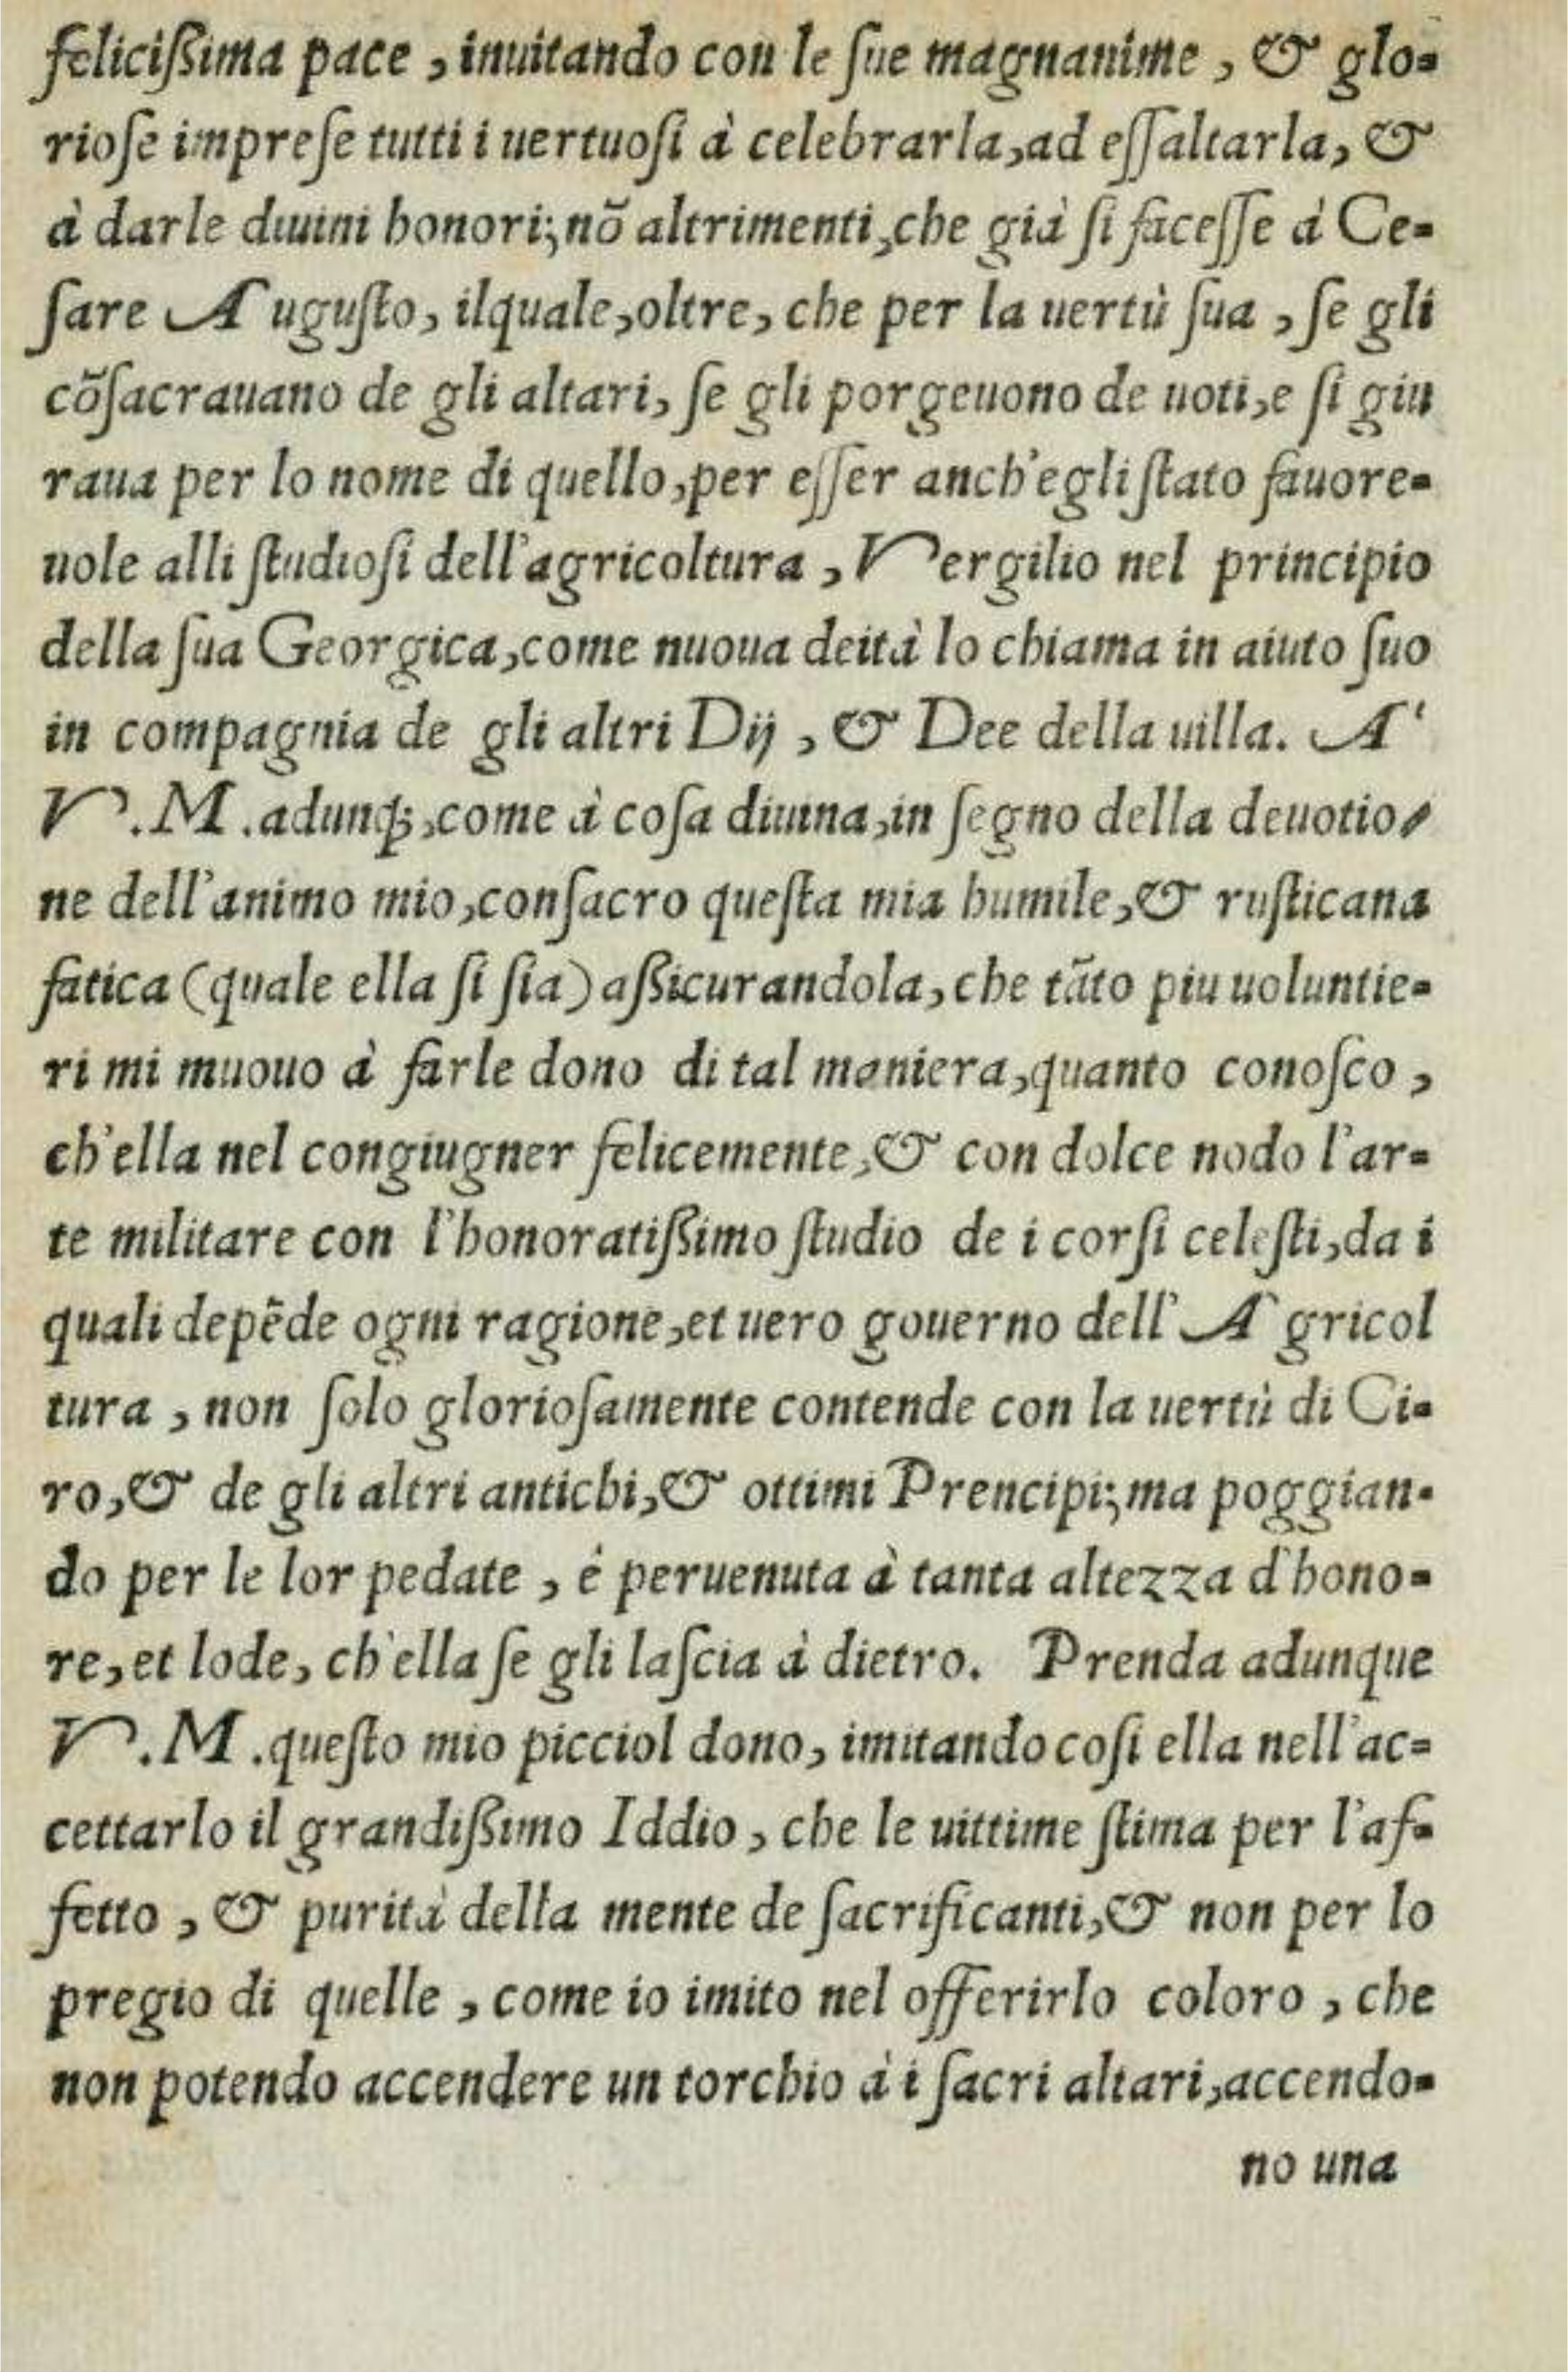 feliciſsima pace, inuitando con le ſue magnanime, & glo-
rioſe impreſe tutti i uertuoſi à celebrarla, ad eſſaltarla, &
à darle diuini honori; nō altrimenti, che già ſi faceſſe à Ce-
ſare Auguſto, ilquale, oltre, che per la uertù ſua, ſe gli
cōſacrauano de gli altari, ſe gli porgeuono de uoti, e ſi giu
raua per lo nome di quello, per eſſer anch'egli ſtato fauore-
uole alli ſtudioſi dell'agricoltura, Vergilio nel principio
della ſua Georgica, come nuoua deità lo chiama in aiuto ſuo
in compagnia de gli altri Dij, & Dee della uilla. A'
V. M. adunq;, come à coſa diuina, in ſegno della deuotio-
ne dell'animo mio, conſacro queſta mia humile, & ruſticana
fatica (quale ella ſi ſia) aſsicurandola, che tāto piu uoluntie-
ri mi muouo à farle dono di tal maniera, quanto conoſco,
ch'ella nel congiugner felicemente, & con dolce nodo l'ar-
te militare con l'honoratiſsimo ſtudio de i corſi celeſti, da i
quali depēde ogni ragione, et uero gouerno dell'Agricol
tura, non ſolo glorioſamente contende con la uertù di Ci-
ro, & de gli altri antichi, & ottimi Prencipi; ma poggian-
do per le lor pedate, é peruenuta à tanta altezza d'hono-
re, et lode, ch'ella ſe gli laſcia à dietro. Prenda adunque
V. M. queſto mio picciol dono, imitando coſi ella nell'ac-
cettarlo il grandiſsimo Iddio, che le uittime ſtima per l'af-
fetto, & purità della mente de ſacrificanti, & non per lo
pregio di quelle, come io imito nel offerirlo coloro, che
non potendo accendere un torchio à i ſacri altari, accendo-
no una